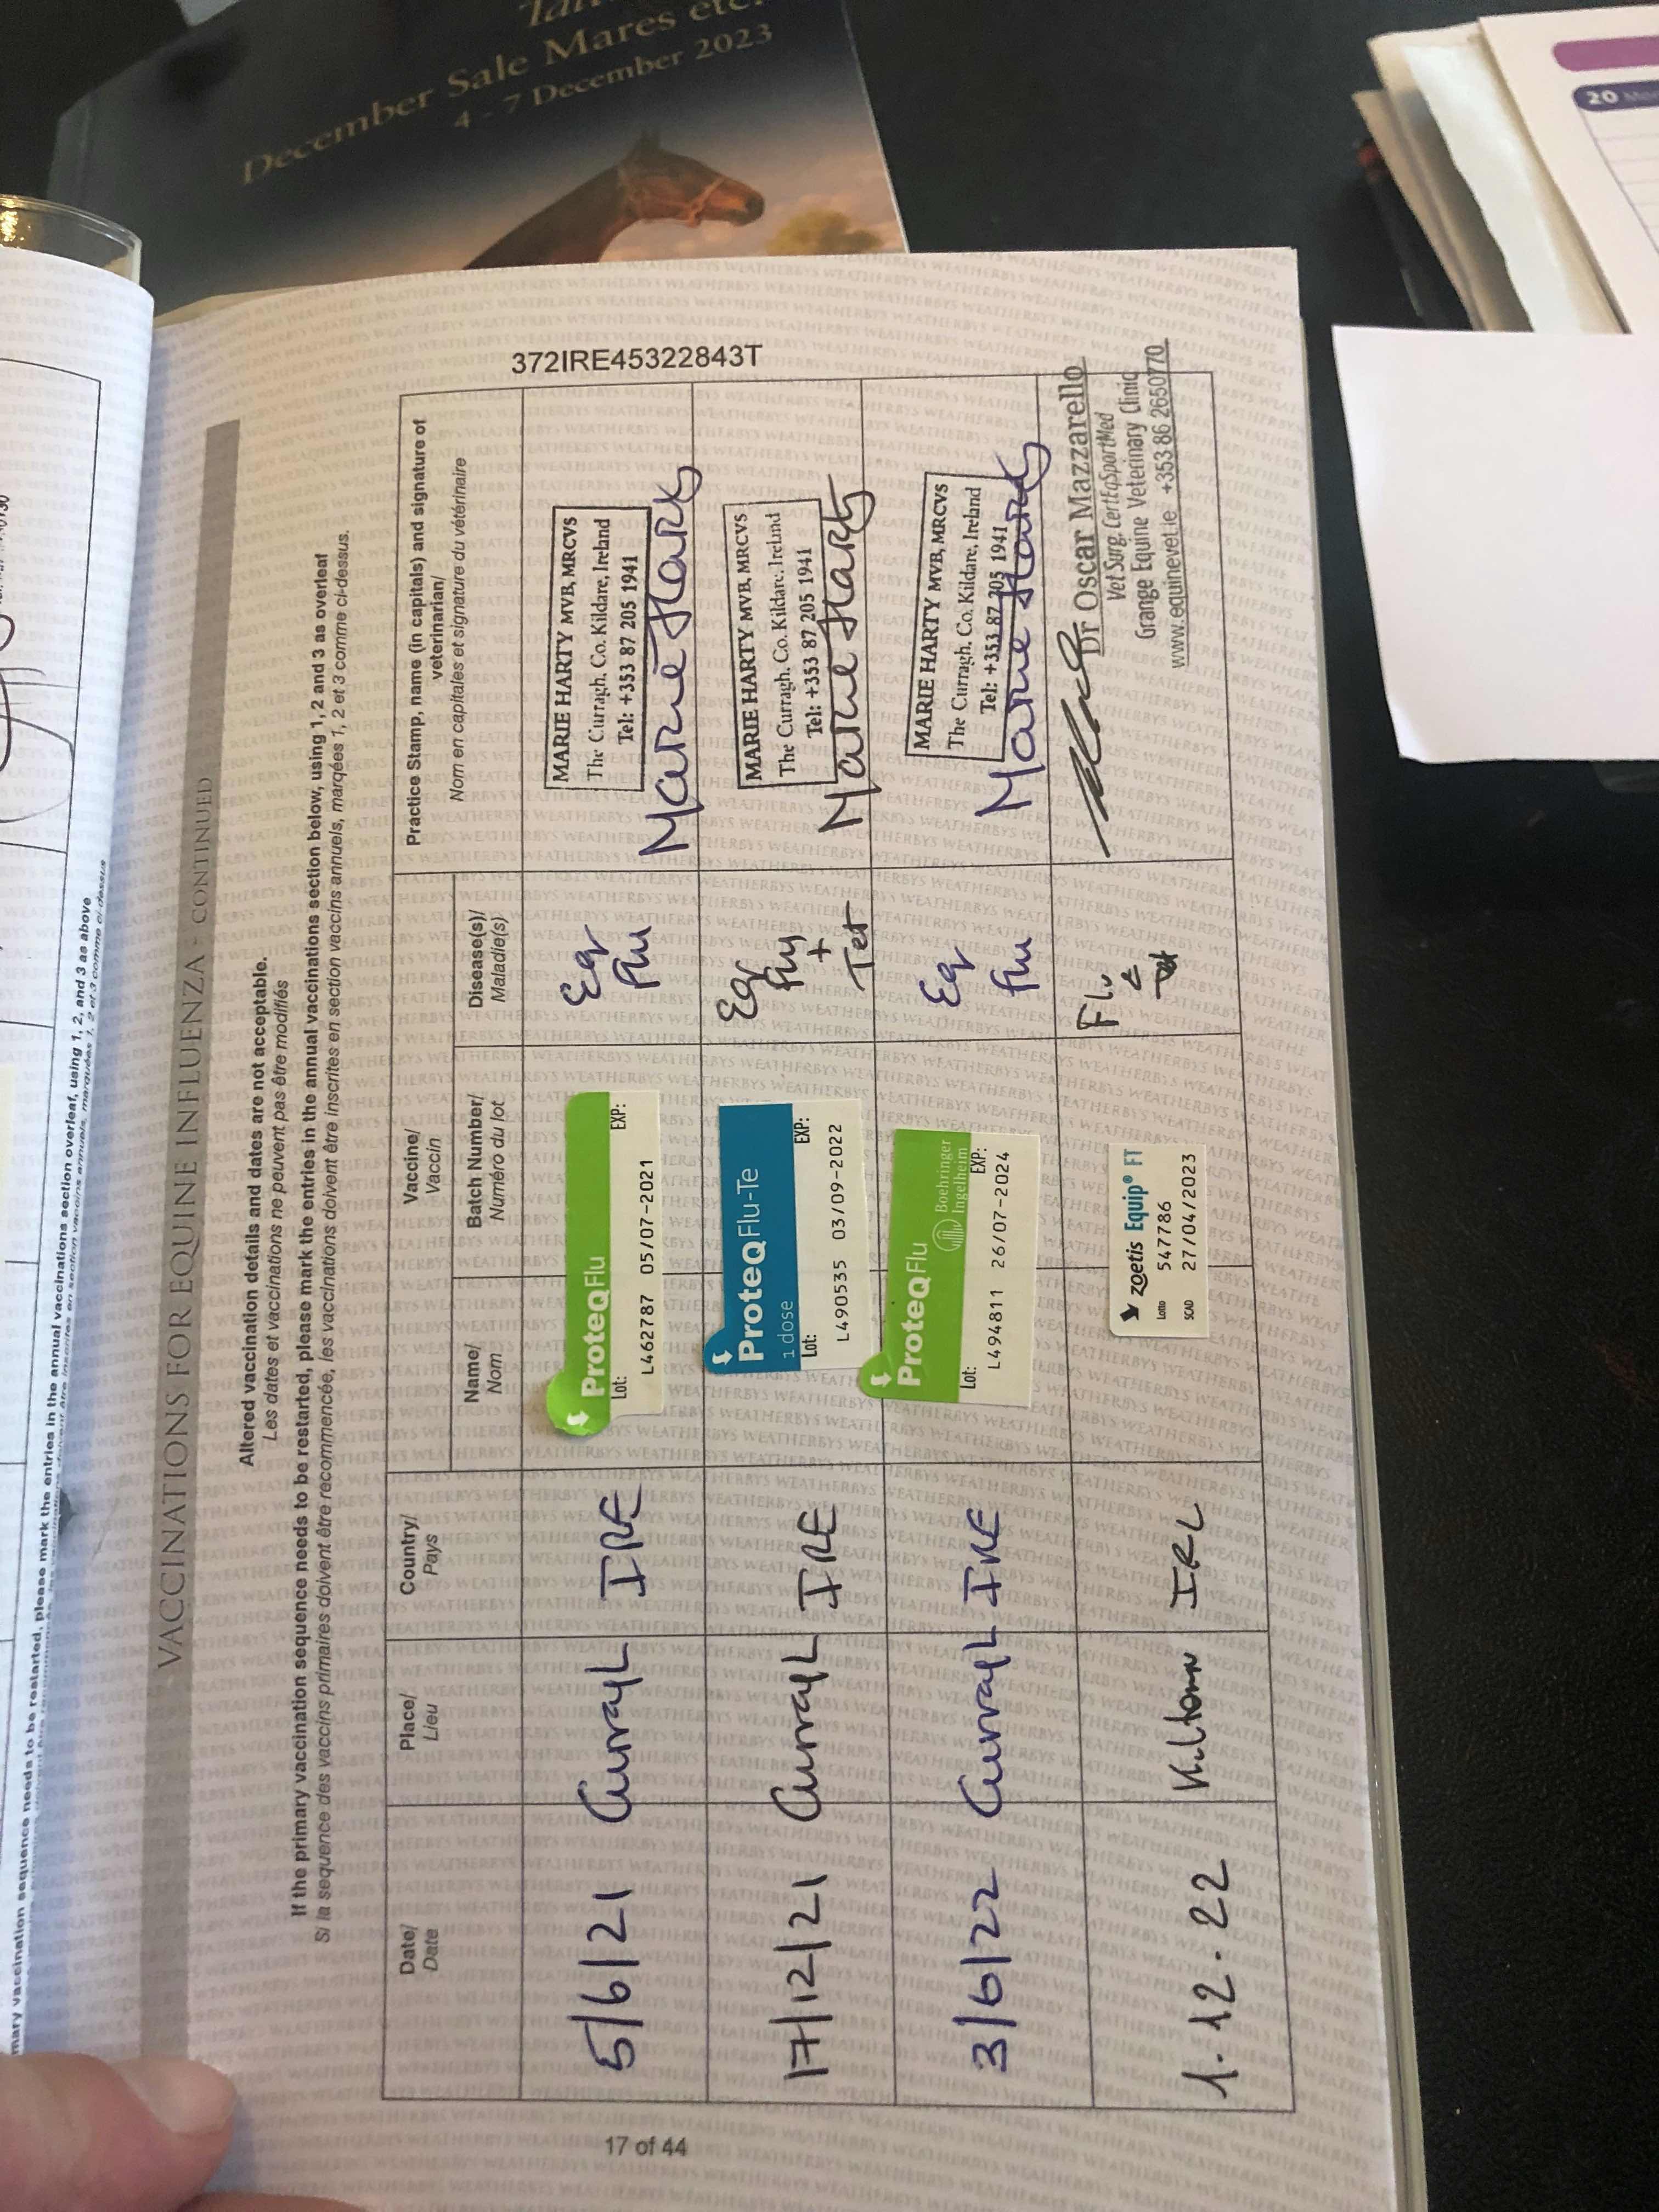 December Sale Mares etc.
4 - 7 December 2023
20
mary vaccination sequence needs to be restarted, please mark the entries in the annual vaccinations section overleaf, using 1, 2, and 3 as above
VACCINATIONS FOR EQUINE INFLUENZA - CONTINUED
Altered vaccination details and dates are not acceptable.
Les dates et vaccinations ne peuvent pas être modifiés
If the primary vaccination sequence needs to be restarted, please mark the entries in the annual vaccinations section below, using 1, 2 and 3 as overleaf
Si la sequence des vaccins primaires doivent être recommencée, les vaccinations doivent être inscrites en section vaccins annuels, marqées 1, 2 et 3 comme ci-dessus.
372IRE45322843T
Date/
Date
Place/
Lieu
Country/
Pays
Vaccine/
Vaccin
Name/
Nom
Batch Number/
Numéro du lot
Disease(s)/
Maladie(s)
Practice Stamp, name (in capitals) and signature of
veterinarian/
Nom en capitales et signature du vétérinaire
5/6/21 Curragh IRE
ProteqFlu
Lot: EXP:
L462787 05/07-2021
Eq
Flu
MARIE HARTY MVB, MRCVS
The Curragh, Co. Kildare, Ireland
Tel: +353 87 205 1941
Marie Harty
17/12/21 Curragh IRE
ProteqFlu-Te
1 dose
Lot: EXP:
L490535 03/09-2022
Eq
Flu
+
Tet
MARIE HARTY MVB, MRCVS
The Curragh, Co. Kildare, Ireland
Tel: +353 87 205 1941
Marie Harty
3/6/22 Curragh IRE
ProteqFlu
Boehringer
Ingelheim
Lot: EXP:
L494811 26/07-2024
Eq
Flu
MARIE HARTY MVB, MRCVS
The Curragh, Co. Kildare, Ireland
Tel: +353 87 205 1941
Marie Harty
1.12.22 IRL
zoetis Equip® FT
Lotto 547786
SCAD 27/04/2023
Flu
Dr Oscar Mazzarello
Vet Surg. CertEqSportMed
Grange Equine Veterinary Clinic
www.equinevet.ie +353 86 2650770
17 of 44